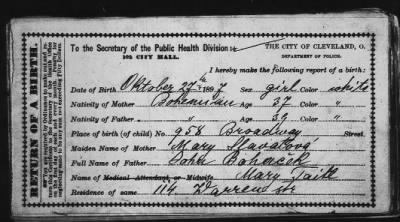 RETURN OF A BIRTH.
To the Secretary of the Public Health Division:
102 CITY HALL.
THE CITY OF CLEVELAND, O.
DEPARTMENT OF POLICE.
I hereby make the following report of a birth:
Date of Birth Oktober 27th 1897 Sex girl Color white
Nativity of Mother Bohemian Age 37 Color "
Nativity of Father " Age 39 Color "
Place of birth (of child) No. 958 Broadway Street.
Maiden Name of Mother Mary Slavatova
Full Name of Father John Bohacek
Name of Medical Attendant, or Midwife Mary Taitl
Residence of same 114 Warren str